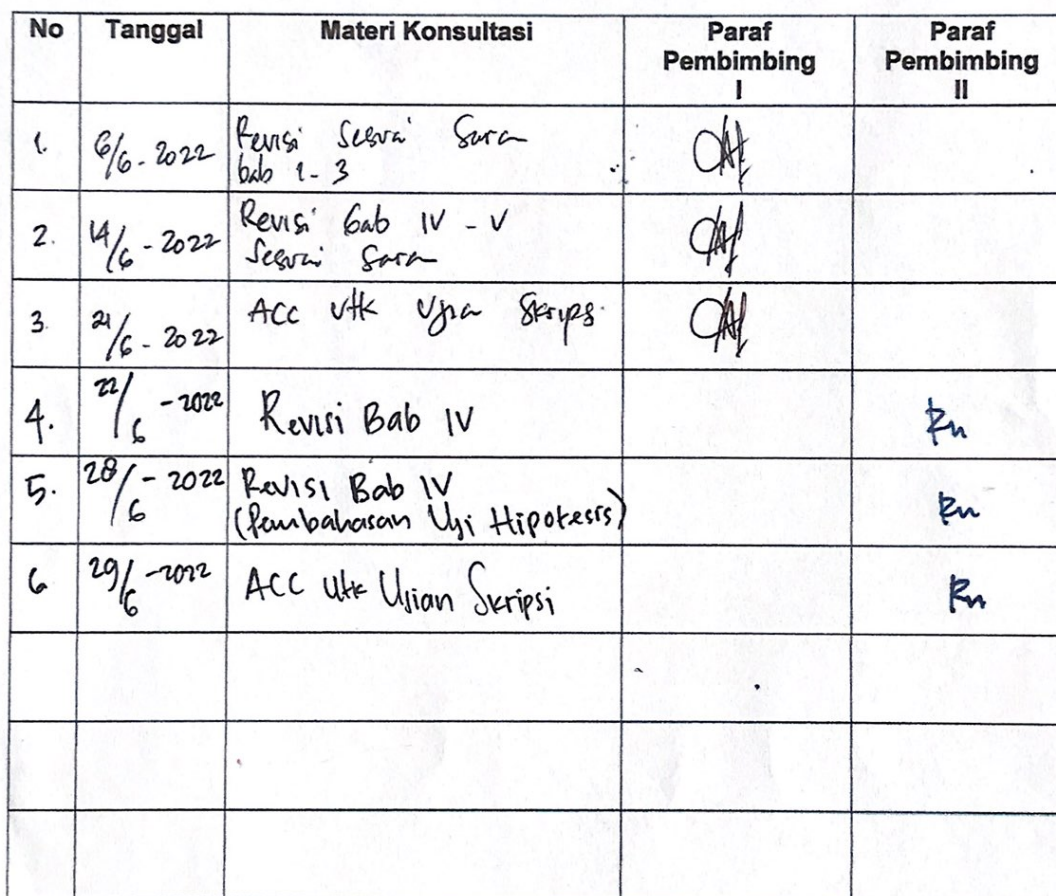 No Tanggal Materi Konsultasi Paraf Paraf
Pembimbing Pembimbing
I II
1. 6/6 - 2022 Revisi Sesuai Saran
bab 1-3
2. 14/6 - 2022 Revisi bab IV - V
Sesuai Saran
3. 21/6 - 2022 ACC utk Ujian Skripsi
4. 22/6 - 2022 Revisi Bab IV Rn
5. 28/6 - 2022 Revisi Bab IV
(Pembahasan Uji Hipotesis) Rn
6 29/6 - 2022 ACC utk Ujian Skripsi Rn